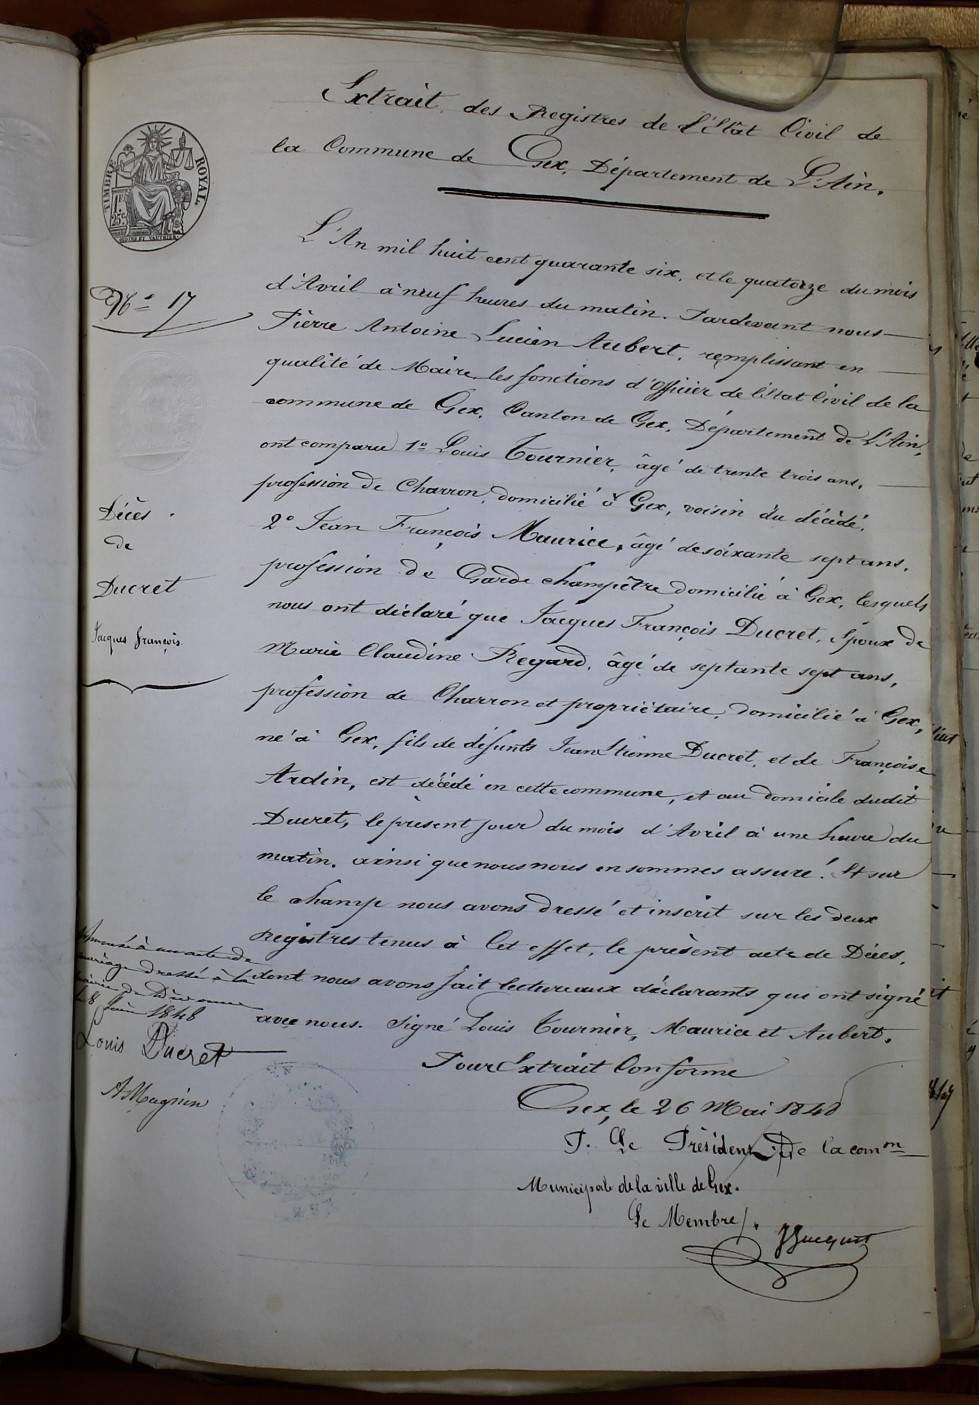 Extrait des Registres de l'État Civil de
la Commune de Gex, Département de L'Ain.
TIMBRE ROYAL.
L'An mil huit cent quarante six, et le quatorze du mois
N° 17
d'Avril à neuf heures du matin. Pardevant nous
Pierre Antoine Lucien Aubert, remplissant en
qualité de Maire les fonctions d'Officier de l'État Civil de la
commune de Gex, Canton de Gex, Département de L'Ain,
ont comparu 1° Louis Tournier, âgé de trente trois ans,
profession de Charron, domicilié à Gex, voisin du décédé.
2° Jean François Maurice, âgé de soixante sept ans,
profession de Garde champêtre domicilié à Gex, lesquels
nous ont déclaré que Jacques François Ducret, Époux de
Marie Claudine Regard, âgé de septante sept ans,
profession de Charron et propriétaire, domicilié à Gex,
né à Gex, fils de défunts Jean Etienne Ducret, et de Françoise
Ardin, est décédé en cette commune, et au domicile dudit
Ducret, le présent jour du mois d'Avril à une heure du
matin. ainsi que nous nous en sommes assuré. Et sur
le champ nous avons dressé et inscrit sur les deux
registres tenus à Cet effet, le présent acte de Décès,
dont nous avons fait lecture aux déclarants qui ont signé
avec nous. Signé Louis Tournier, Maurice et Aubert.
Pour Extrait Conforme
Gex, le 26 Mai 1848
P. Le Président de la comon
Municipale de la ville de Gex.
Le Membre
Décès
de
Ducret
Jacques françois
à un acte de
mariage dressé à la
mairie de Divonne
le 8 Juin 1848
Louis Ducret
AMagnin